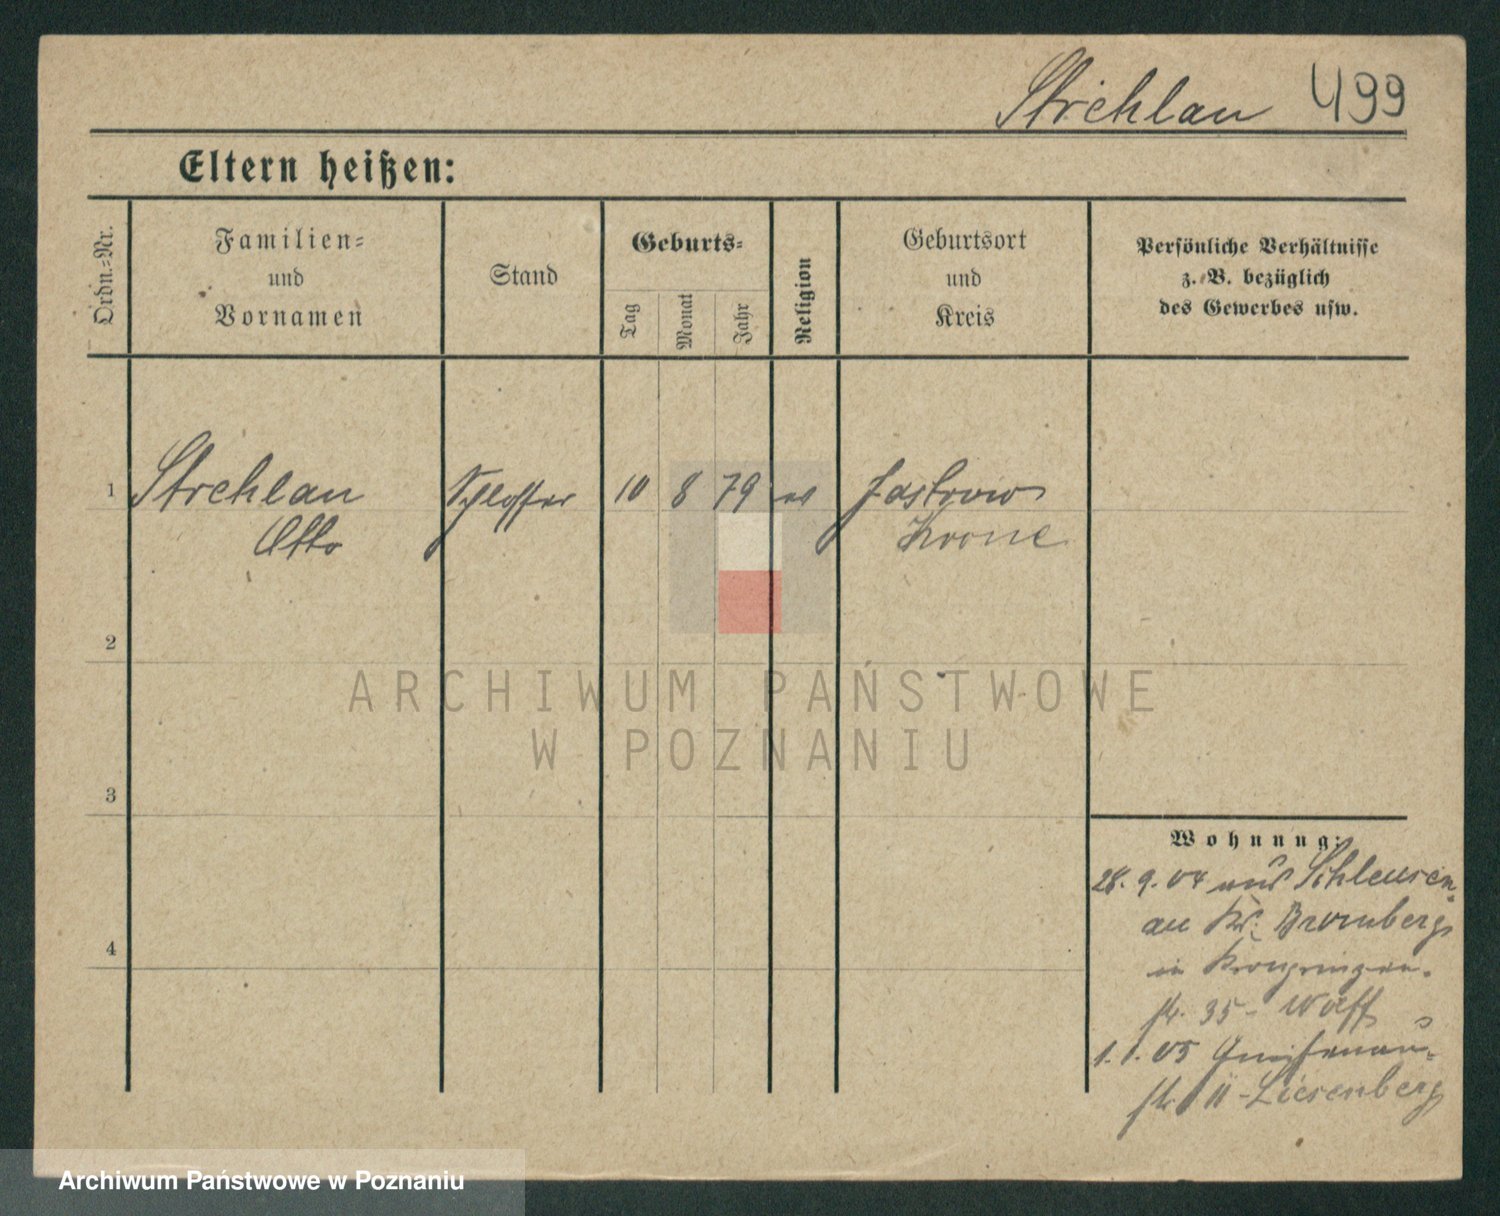 Strehlau 499
Eltern heißen:
Ordn.-Nr.
Familien-
und
Vornamen
Stand
Geburts-
Tag
Monat
Jahr
Religion
Geburtsort
und
Kreis
Persönliche Verhältnisse
z. B. bezüglich
des Gewerbes usw.
1 Strehlau Schlosser 10 8 79 ev Jastrow
Otto Krone
2
3
4
Wohnung:
28. 9. 04 aus Schleusen-
au Kr. Bromberg
in Kronprinzen-
str. 35-
1. 1. 05 Gneisenau-
str. 11 - Liesenberg
ARCHIWUM PAŃSTWOWE
W POZNANIU
Archiwum Państwowe w Poznaniu